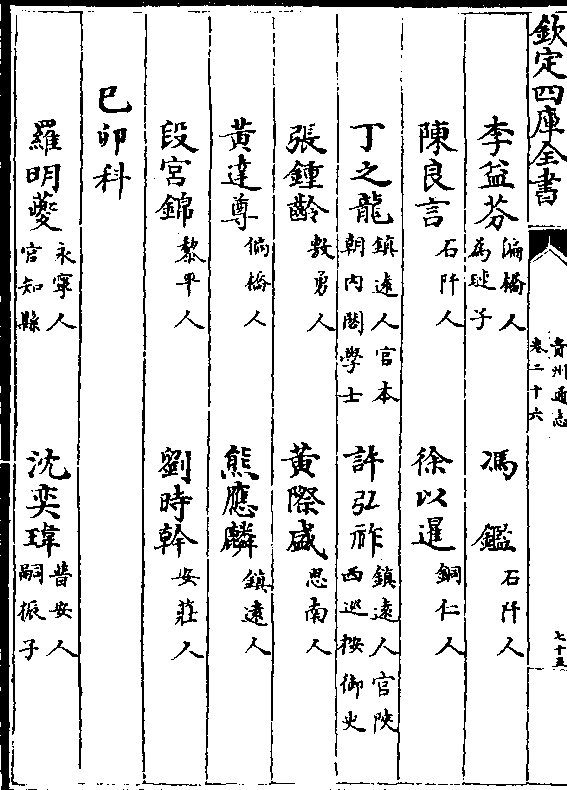 欽定四庫全書
貴州通志
卷二十六
七十五
李益芬 偏橋人 為 子 馮鑑 石阡人
陳良言 石阡人 徐以暹 銅仁人
丁之龍 鎮遠人官本 朝內閣學士 許弘祚 鎮遠人官陝 西巡按御史
張鍾齡 敷勇人 黃際盛 思南人
黃達尊 偏橋人 熊應麟 鎮遠人
段宮錦 黎平人 劉時幹 安莊人
己卯科
羅明夔 永寧人 官知縣 沈奕瑋 普安人 嗣振子